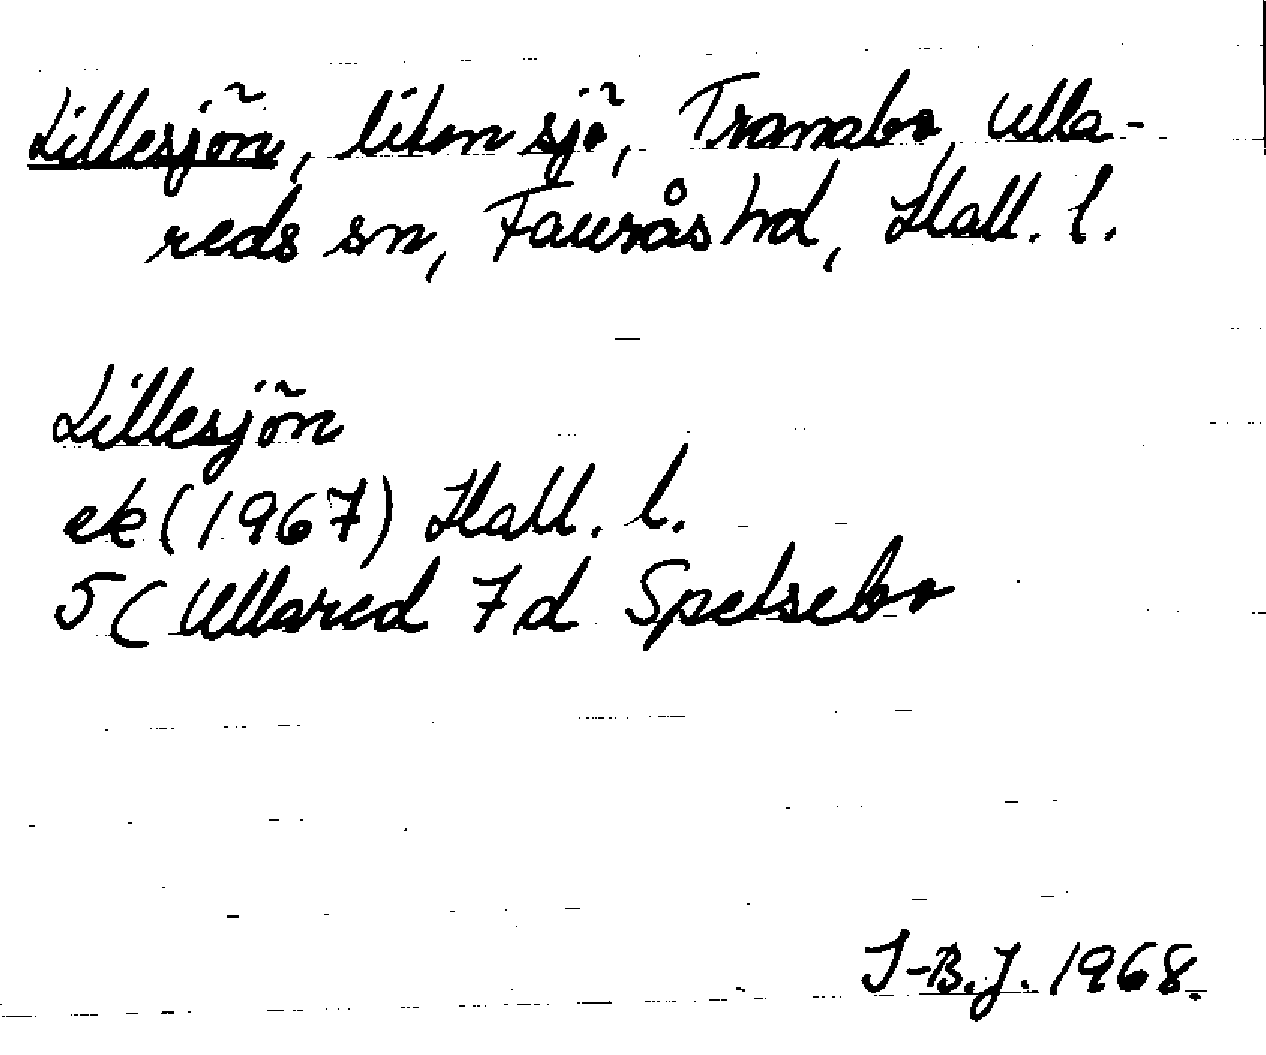 Lillesjön, liten sjö, Tranabo, Ulla-
reds sn, Faurås hd, Hall. l.
Lillesjön
ek (1967) Hall. l.
5C Ullared 7d Spetsebo
I-B.J. 1968.